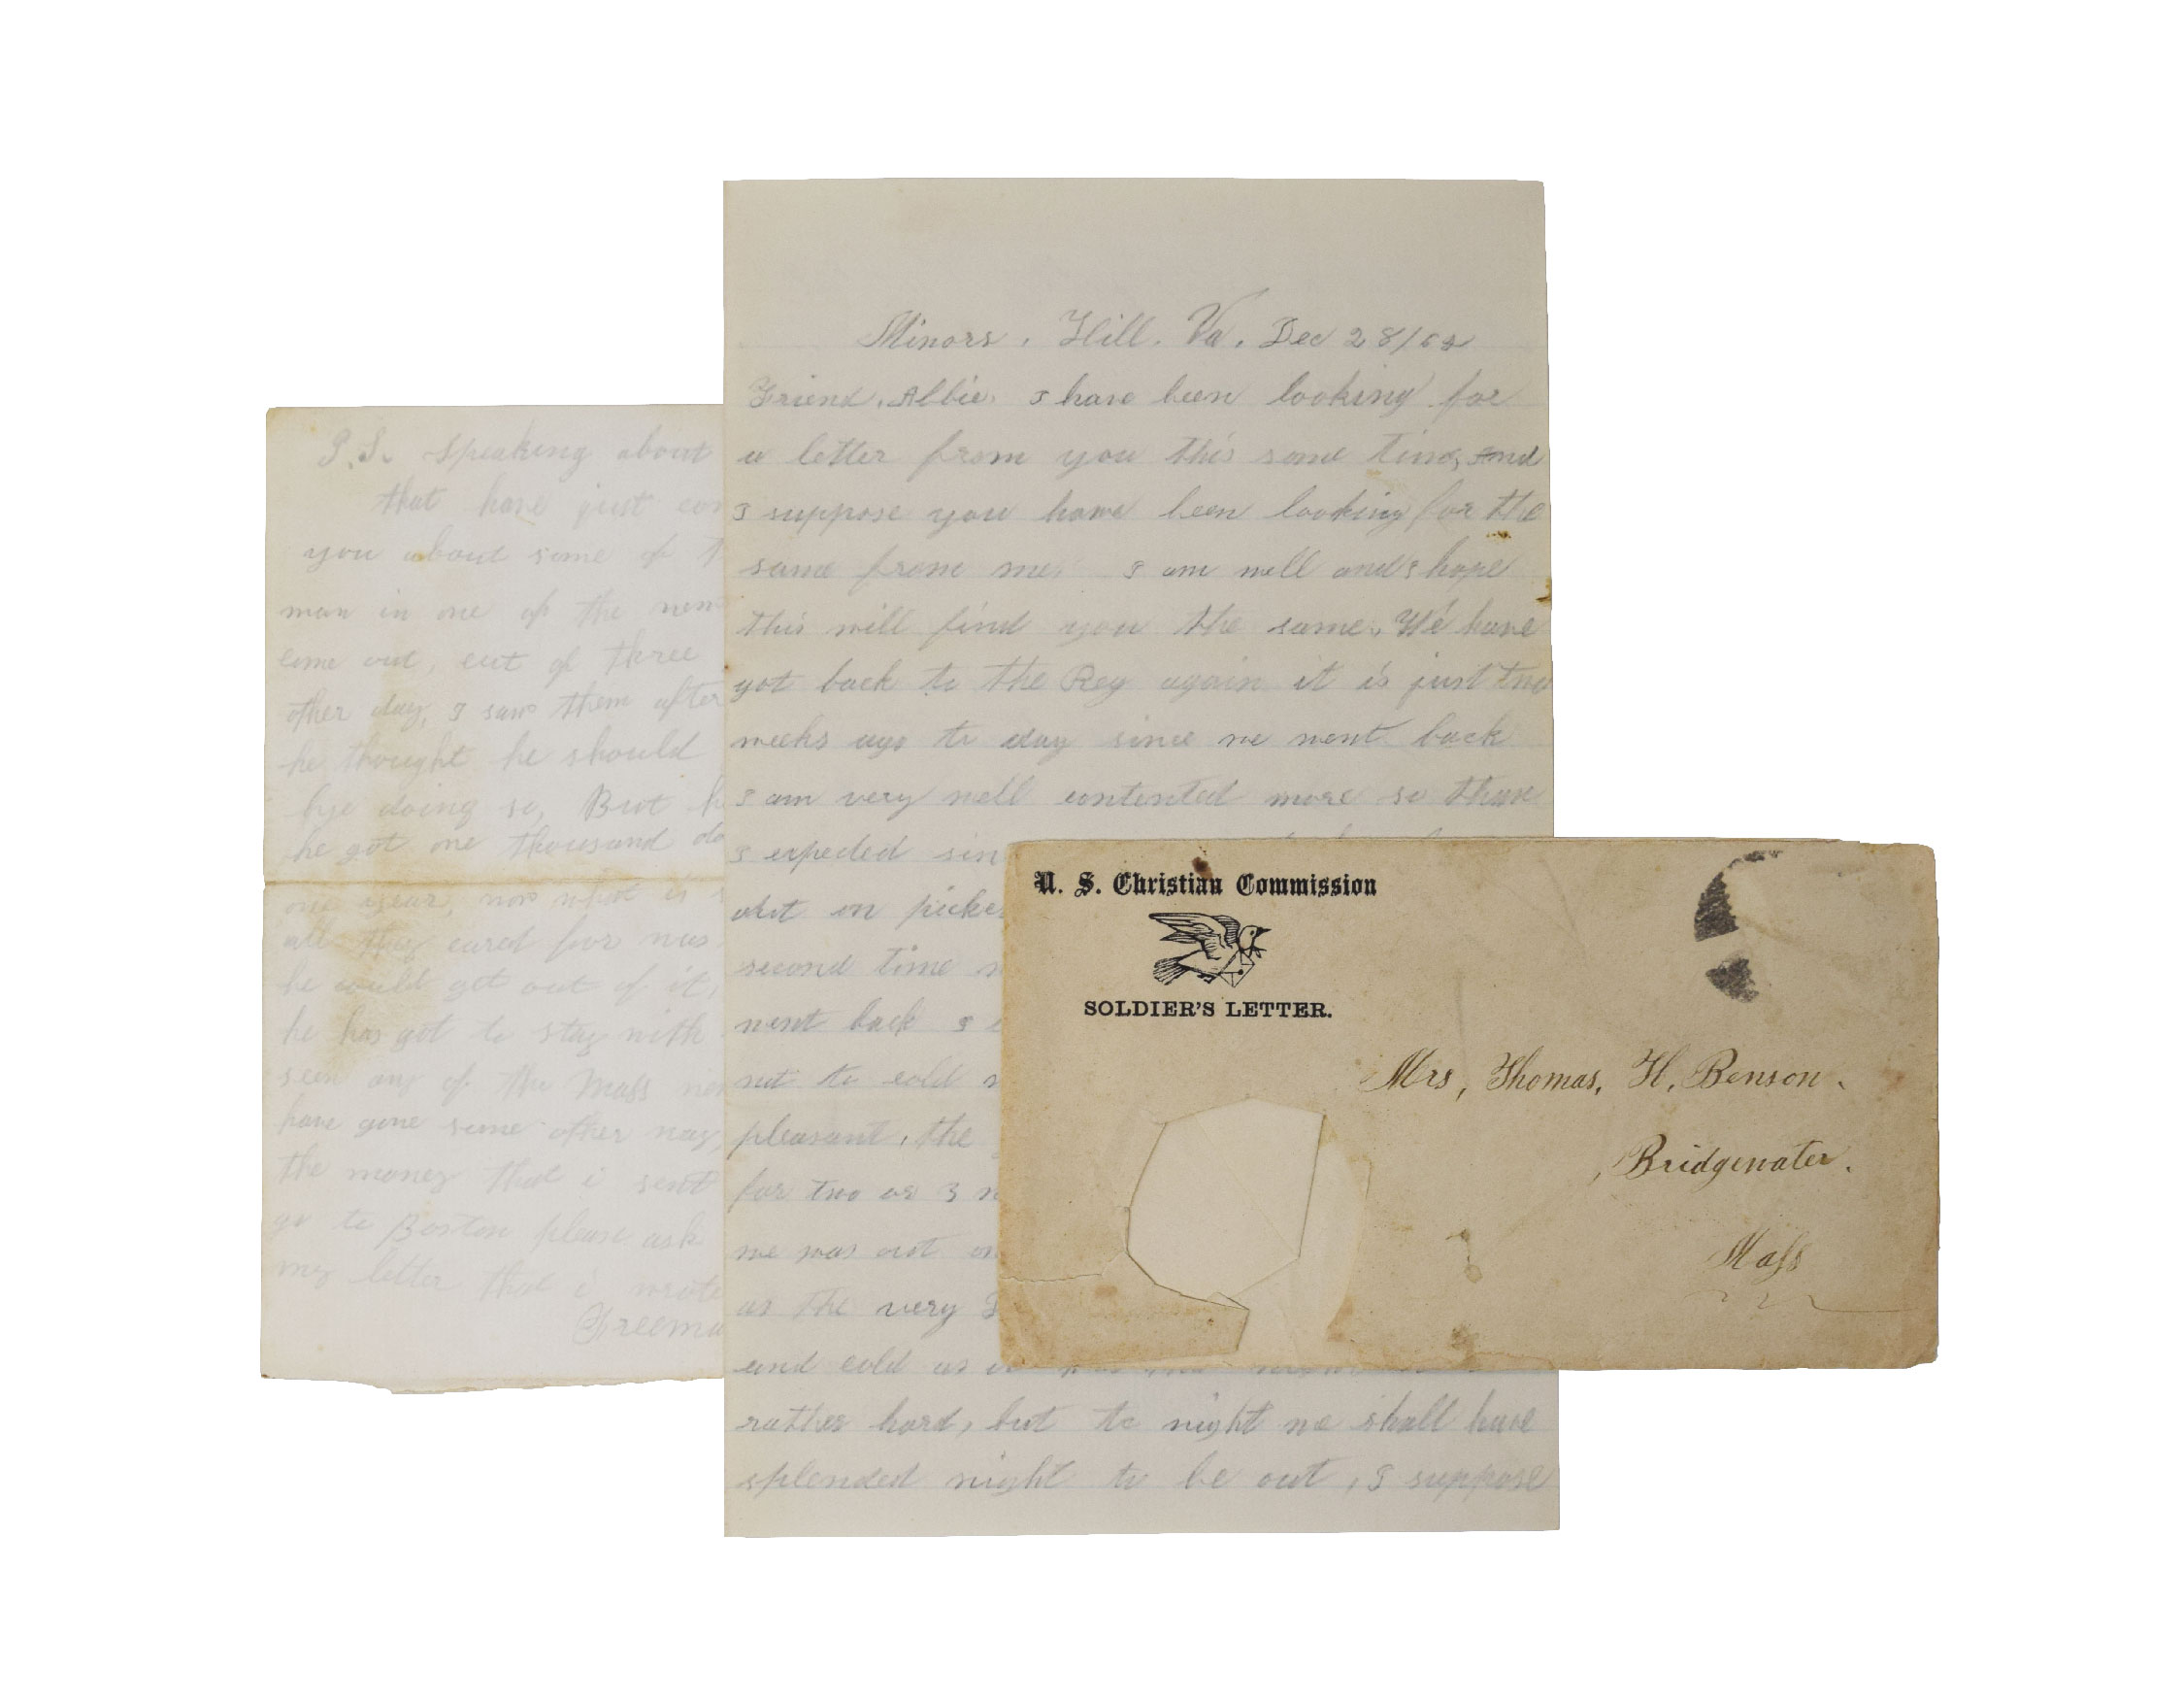 Minors. Hill. Va. Dec 28/64
Friend. Albie. I have been looking for
a letter from you this some time, and
I suppose you have been looking for the
same from me. I am well and I hope
this will find you the same. We have
got back to the Reg again it is just two
weeks ago to day since we went back
I am very well contented more so than
I expected sin
out on picke
second time
went back I
not to cold
pleasant, the
for two or 3
we was out on
as the very
and cold as
rather hard, but to night we shall have
splended night to be out, I suppose
P.S. Speaking about
that have just
you about some of
man in one of the
come out, cut of three
other day, I saw them after
he thought he should
bye doing so, But
he got one thousand
one year, now what is
all they cared for was
he would get out of it,
he has got to stay with
seen any of the Mass
have gone some other way,
the money that i sent
go to Boston please ask
my letter that i wrote
Freema
U. S. Christian Commission
SOLDIER'S LETTER.
Mrs, Thomas, H, Benson.
Bridgewater.
Mass